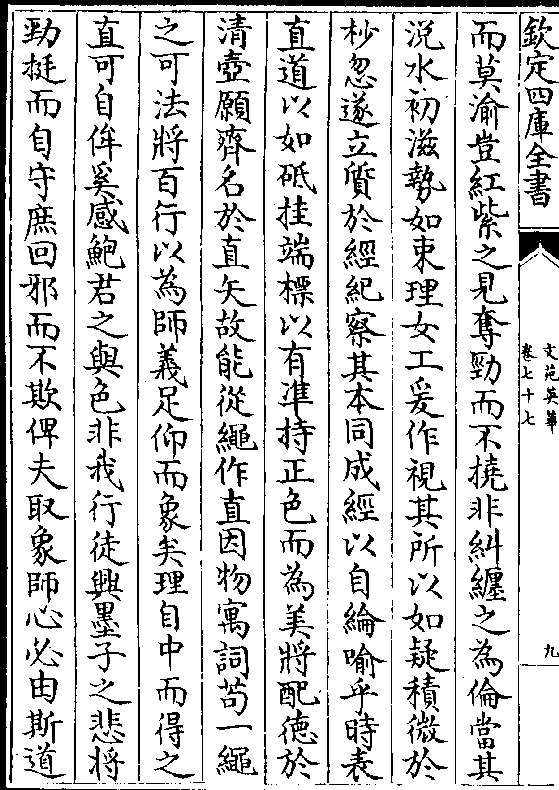 欽定四庫全書
文苑英華
卷七十七
九
而莫渝豈紅紫之見奪勁而不撓非糾纒之為倫當其
涚水初滋勢如束理女工爰作視其所以如疑積微於
杪忽遂立質於經紀察其本同成經以自綸喻乎時表
直道以如砥挂端標以有准持正色而為美將配德於
清壺願齊名於直矢故能從繩作直因物寓詞苟一繩
之可法將百行以為師義足仰而象矣理自中而得之
直可自侔奚感鮑君之與色非我行徒興墨子之悲將
勁挺而自守庶回邪而不欺俾夫取象師心必由斯道